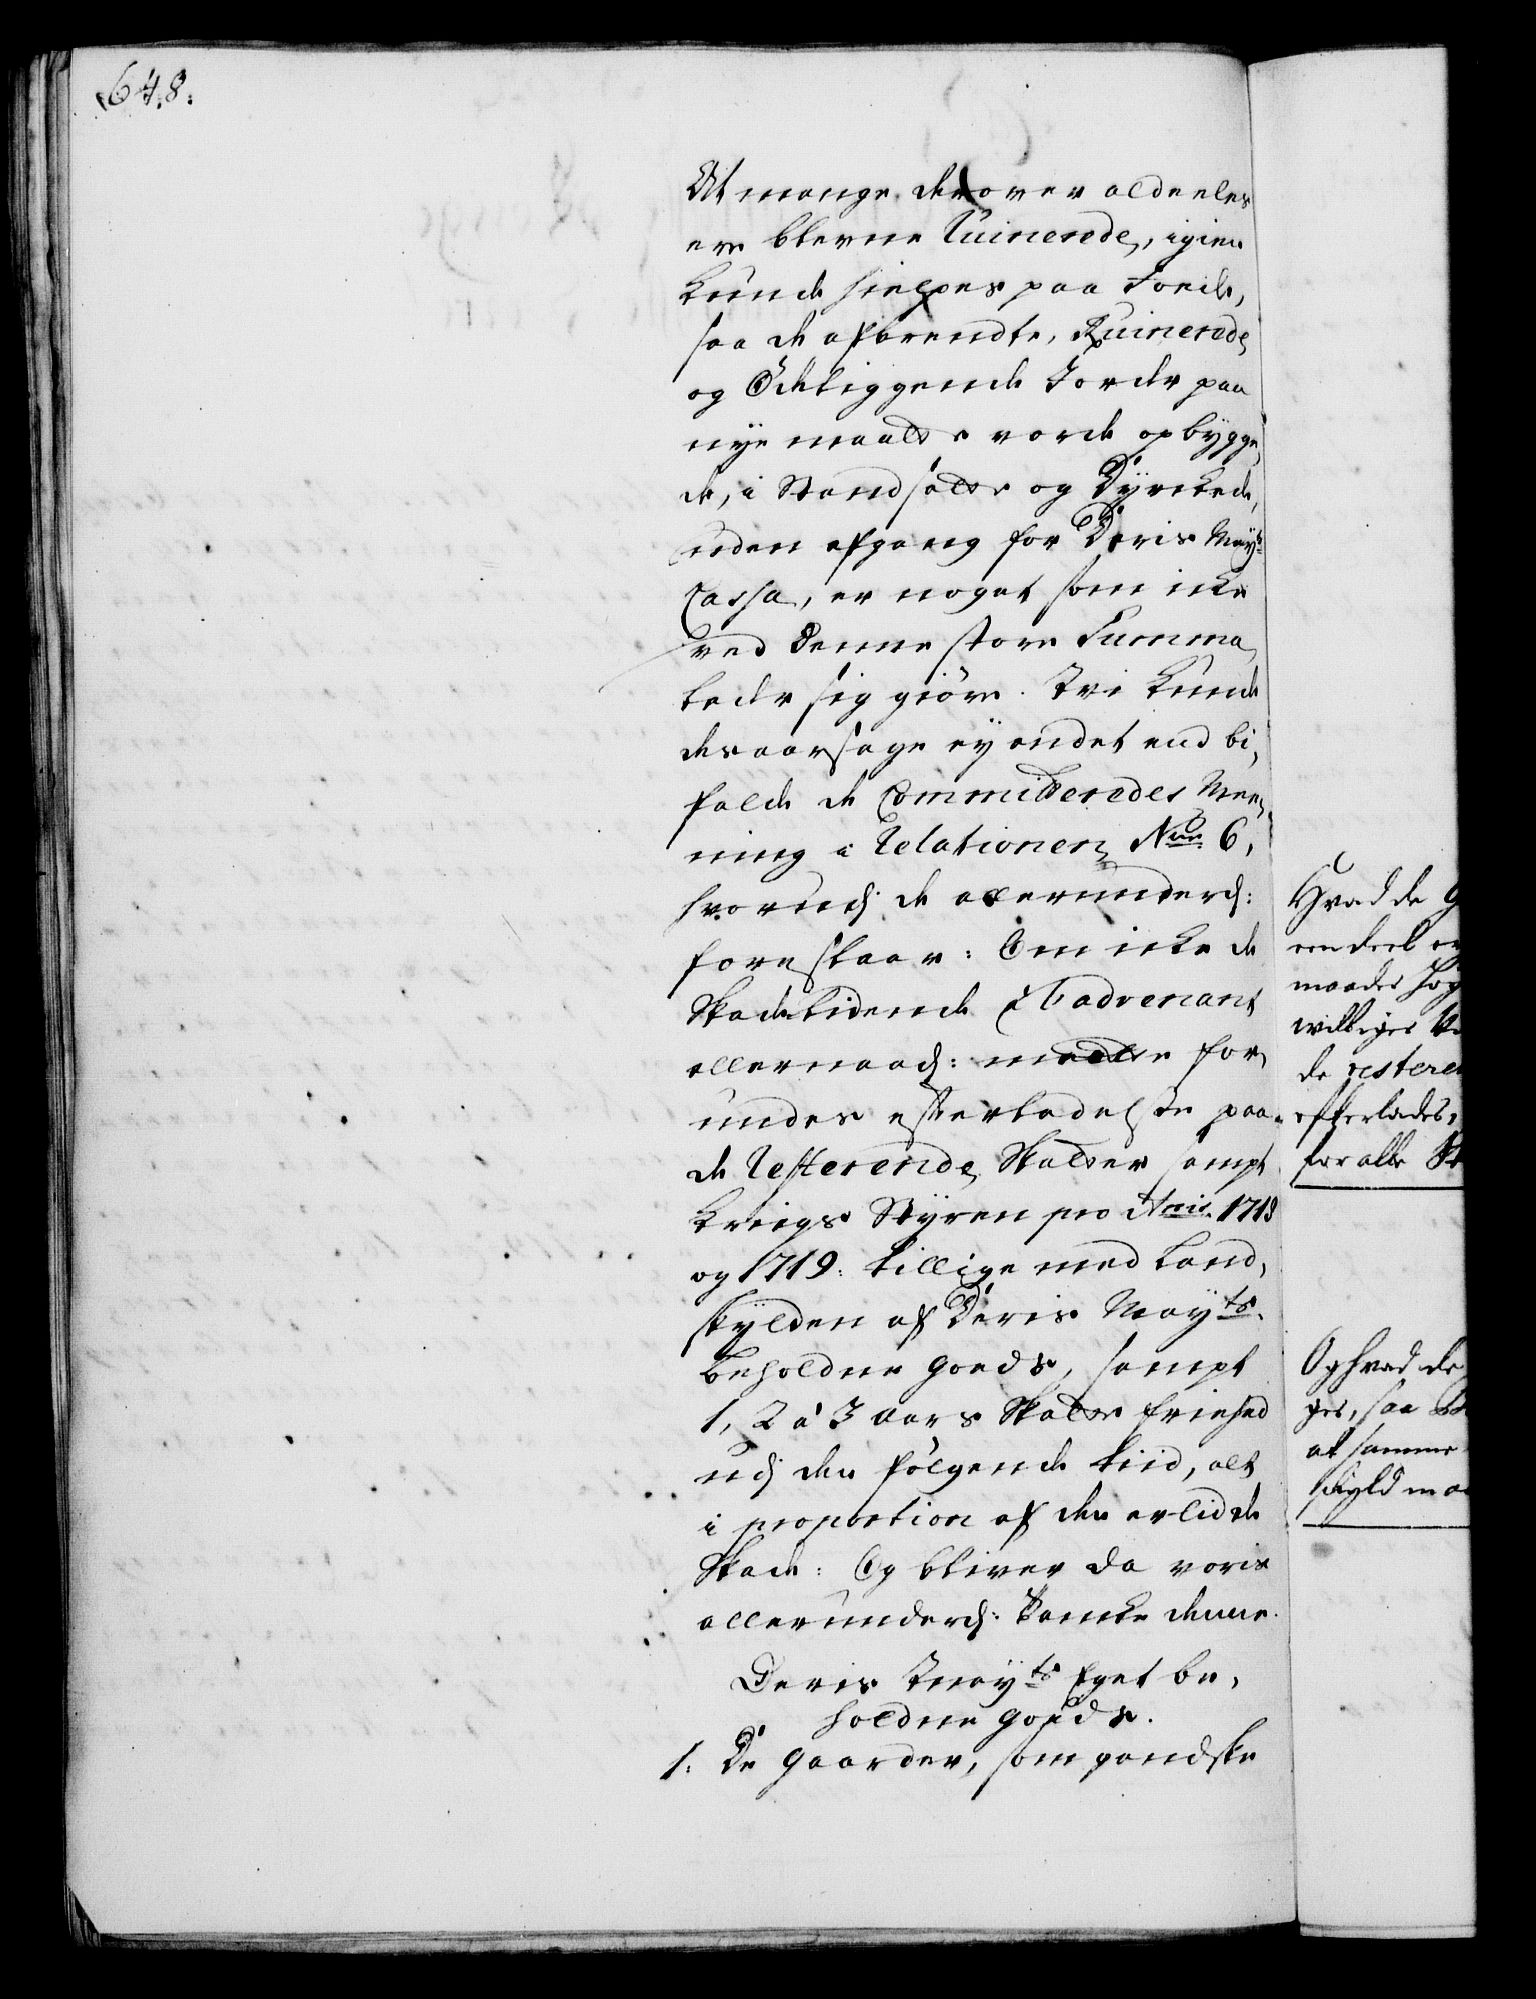 648.
At mange derover aldeeles
ere blevne Ruinerede, igien
kunde hielpes paa Foede,
saa de afbrendte, Ruinerede
og Ödeliggende Jorder paa
nye maatte vorde opbygge,
de, i Stand satte og Dyrckede,
uden afgang for Deris Mayts
Cassa, er noget som icke
ved denne store Summa
lader sig giöre. Vi kunde
desaarsage ey andet end bi,
falde de Committeredes Mee,
ning i Relationen No. 6,
hvorudj de allerunderd:
foreslaar: Om icke de
Skadelidende à l'advenant
allernaad: maatte for,
undes efterladelse paa
de Resterende Skatter sampt
Krigs Styren pro Anis 1718
og 1719: tillige med Land,
skylden af Deris Mayts
beholdne Goeds, sampt
1, 2 à 3 Aars Skatte friehed
udj den fölgende tiid, alt
i proportion af den erlidde
Skade: Og bliver da voris
allerunderd: Tancke denne.
Deris Mayts Eget be,
holdne Goeds.
1. De Gaarder, som gandske
Hvad de
een deel
maader
williges
de restere
efterlades,
for alle
Og hvad de
ges, saa
at samme
skyld